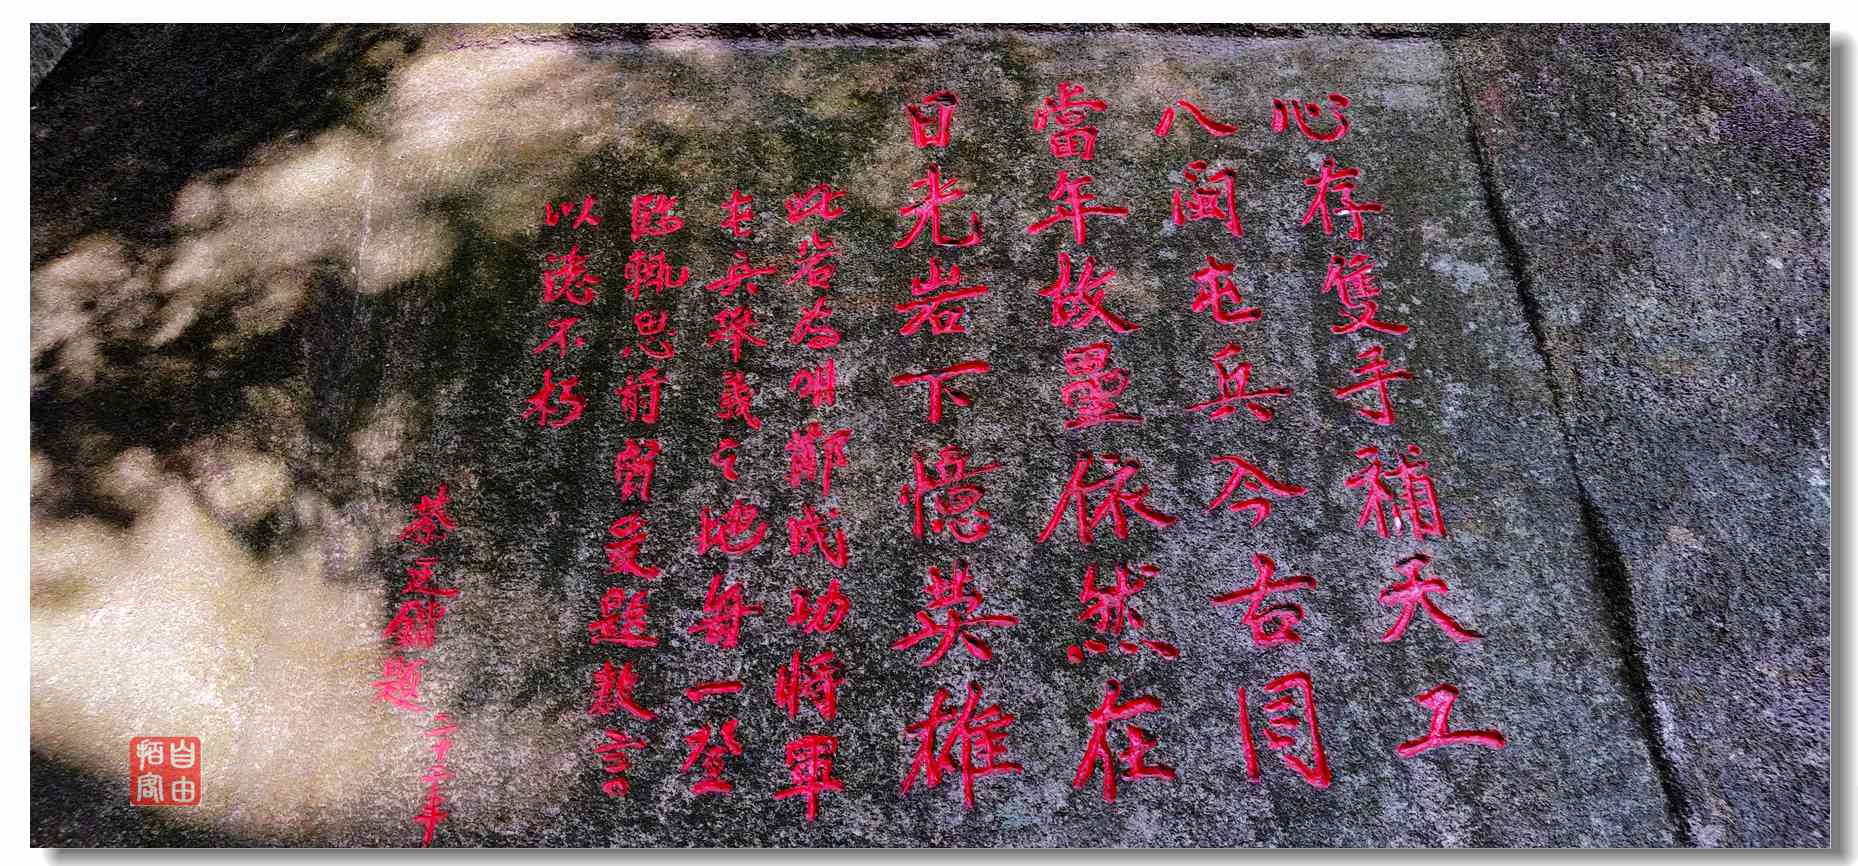 心存隻手補天工
八閩屯兵今古同
當年故壘依然在
日光岩下憶英雄
此岩為明鄭成功將軍
屯兵舉義之地每一登
臨輒思前賢爰題數言
以誌不朽
蔡廷鍇題
自由
拍客